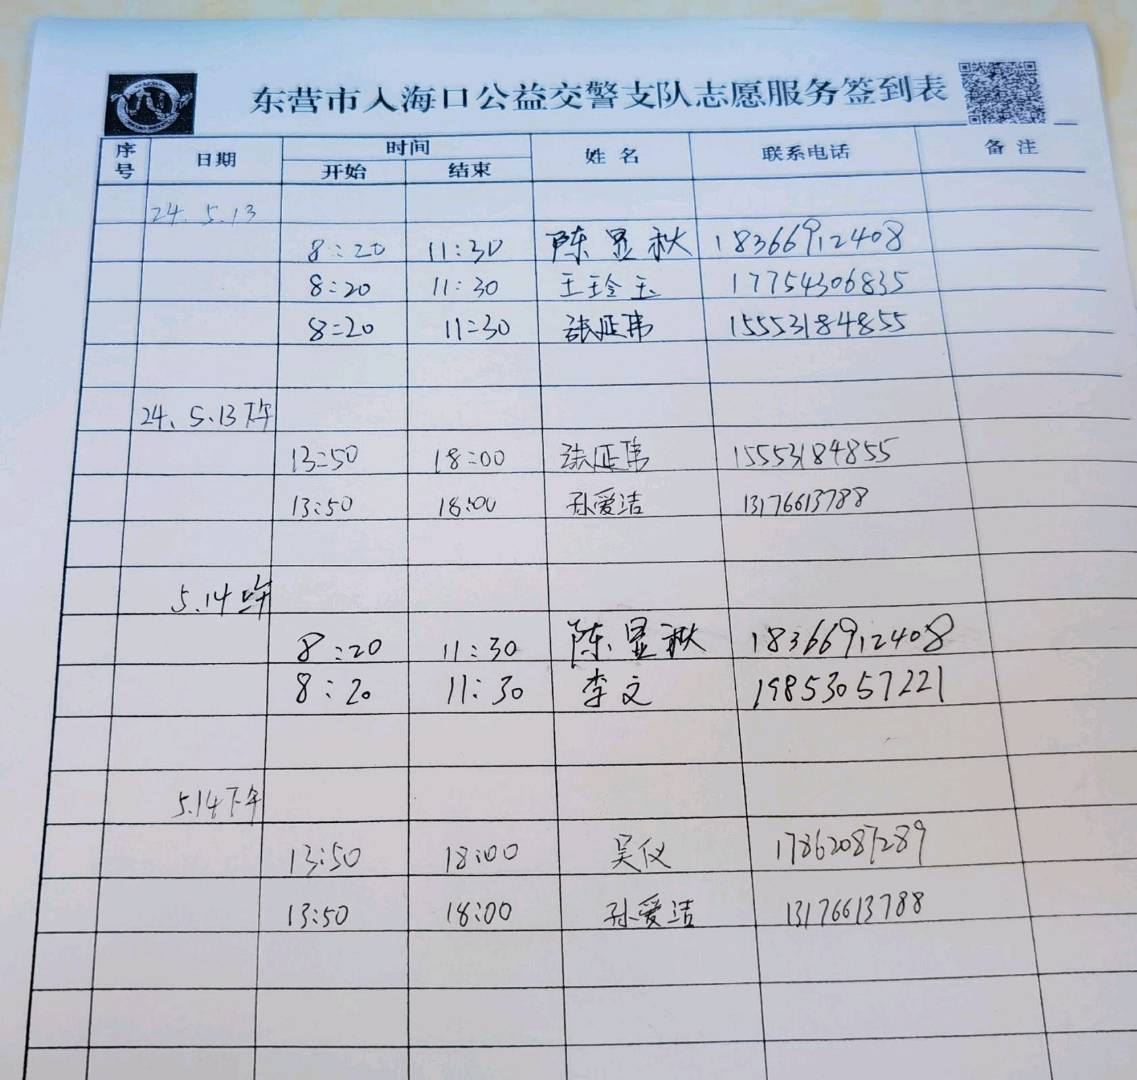 东营市入海口公益交警支队志愿服务签到表
序号 日期 时间 姓名 联系电话 备注
开始 结束
24.5.13
8:20 11:30 陈显秋 18366912408
8:20 11:30 王玲玉 17754306835
8:20 11:30 张延伟 15553184855
24.5.13下午
13:50 18:00 张延伟 15553184855
13:50 18:00 孙爱洁 13176613788
5.14上午
8:20 11:30 陈显秋 18366912408
8:20 11:30 李文 19853057221
5.14下午
13:50 18:00 吴仪 17862087289
13:50 18:00 孙爱洁 13176613788